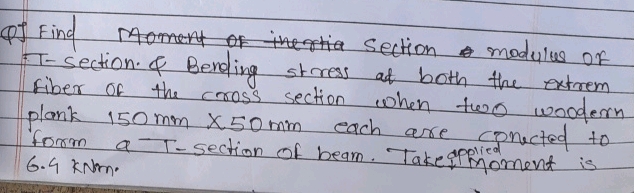 Q] Find Moment of inertia section modulus of
T-section. & Bending stress at both the extrem
fiber of the cross section when two woodern
plank 150 mm X 50 mm each are conected to
form a T-section of beam. Take applied moment is
6.4 kNm.